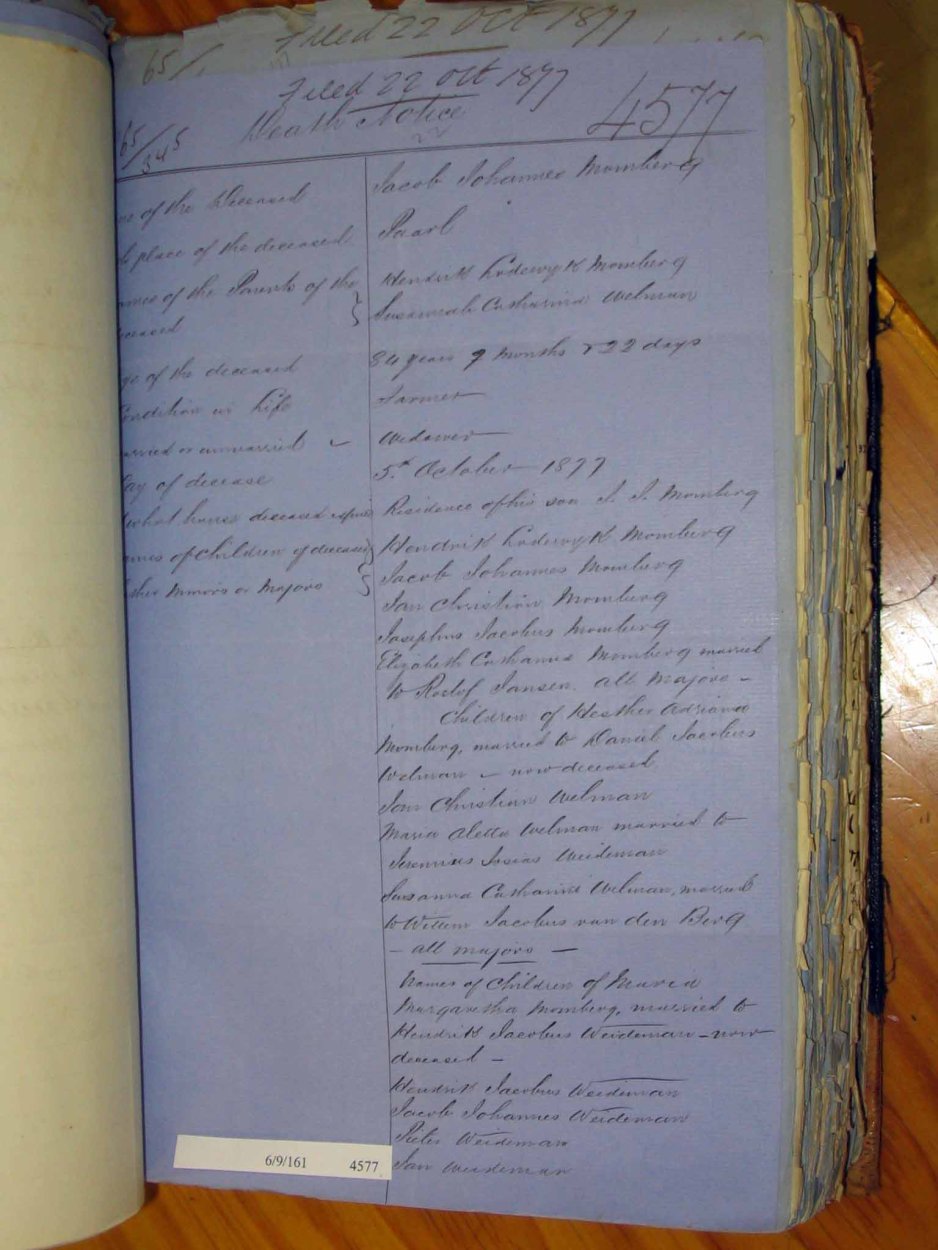 Filed 22 Oct 1877
65/
Filed 22 Oct 1877
65/345
Death Notice
4577
of the Deceased
Jacob Johannes Momberg
place of the deceased
Paarl
ames of the Parents of the
eceased
Hendrik Lodewyk Momberg
Susannah Catharina Welman
ge of the deceased
84 years 9 months & 22 days
ondition in Life
Farmer
arried or unmarried
Widower
ay of decease
5th October 1877
what house deceased
Residence of his son J. J. Momberg
ames of children of deceased
ther Minors or Majors
Hendrik Lodewyk Momberg
Jacob Johannes Momberg
Jan Christian Momberg
Josephus Jacobus Momberg
Elizabeth Catharina Momberg married
to Roelof Jansen. all Majors -
Children of Hester Adriana
Momberg, married to Daniel Jacobus
Welman - now deceased
Jan Christian Welman
Maria Aletta Welman married to
Jeremias Josias Weideman
Susanna Catharina Welman, married
to Willem Jacobus van den Berg
- all majors -
Names of Children of Maria
Margaretha Momberg, married to
Hendrik Jacobus Weideman - now
deceased -
Hendrik Jacobus Weideman
Jacob Johannes Weideman
Pieter Weideman
Jan Weideman
6/9/161 4577